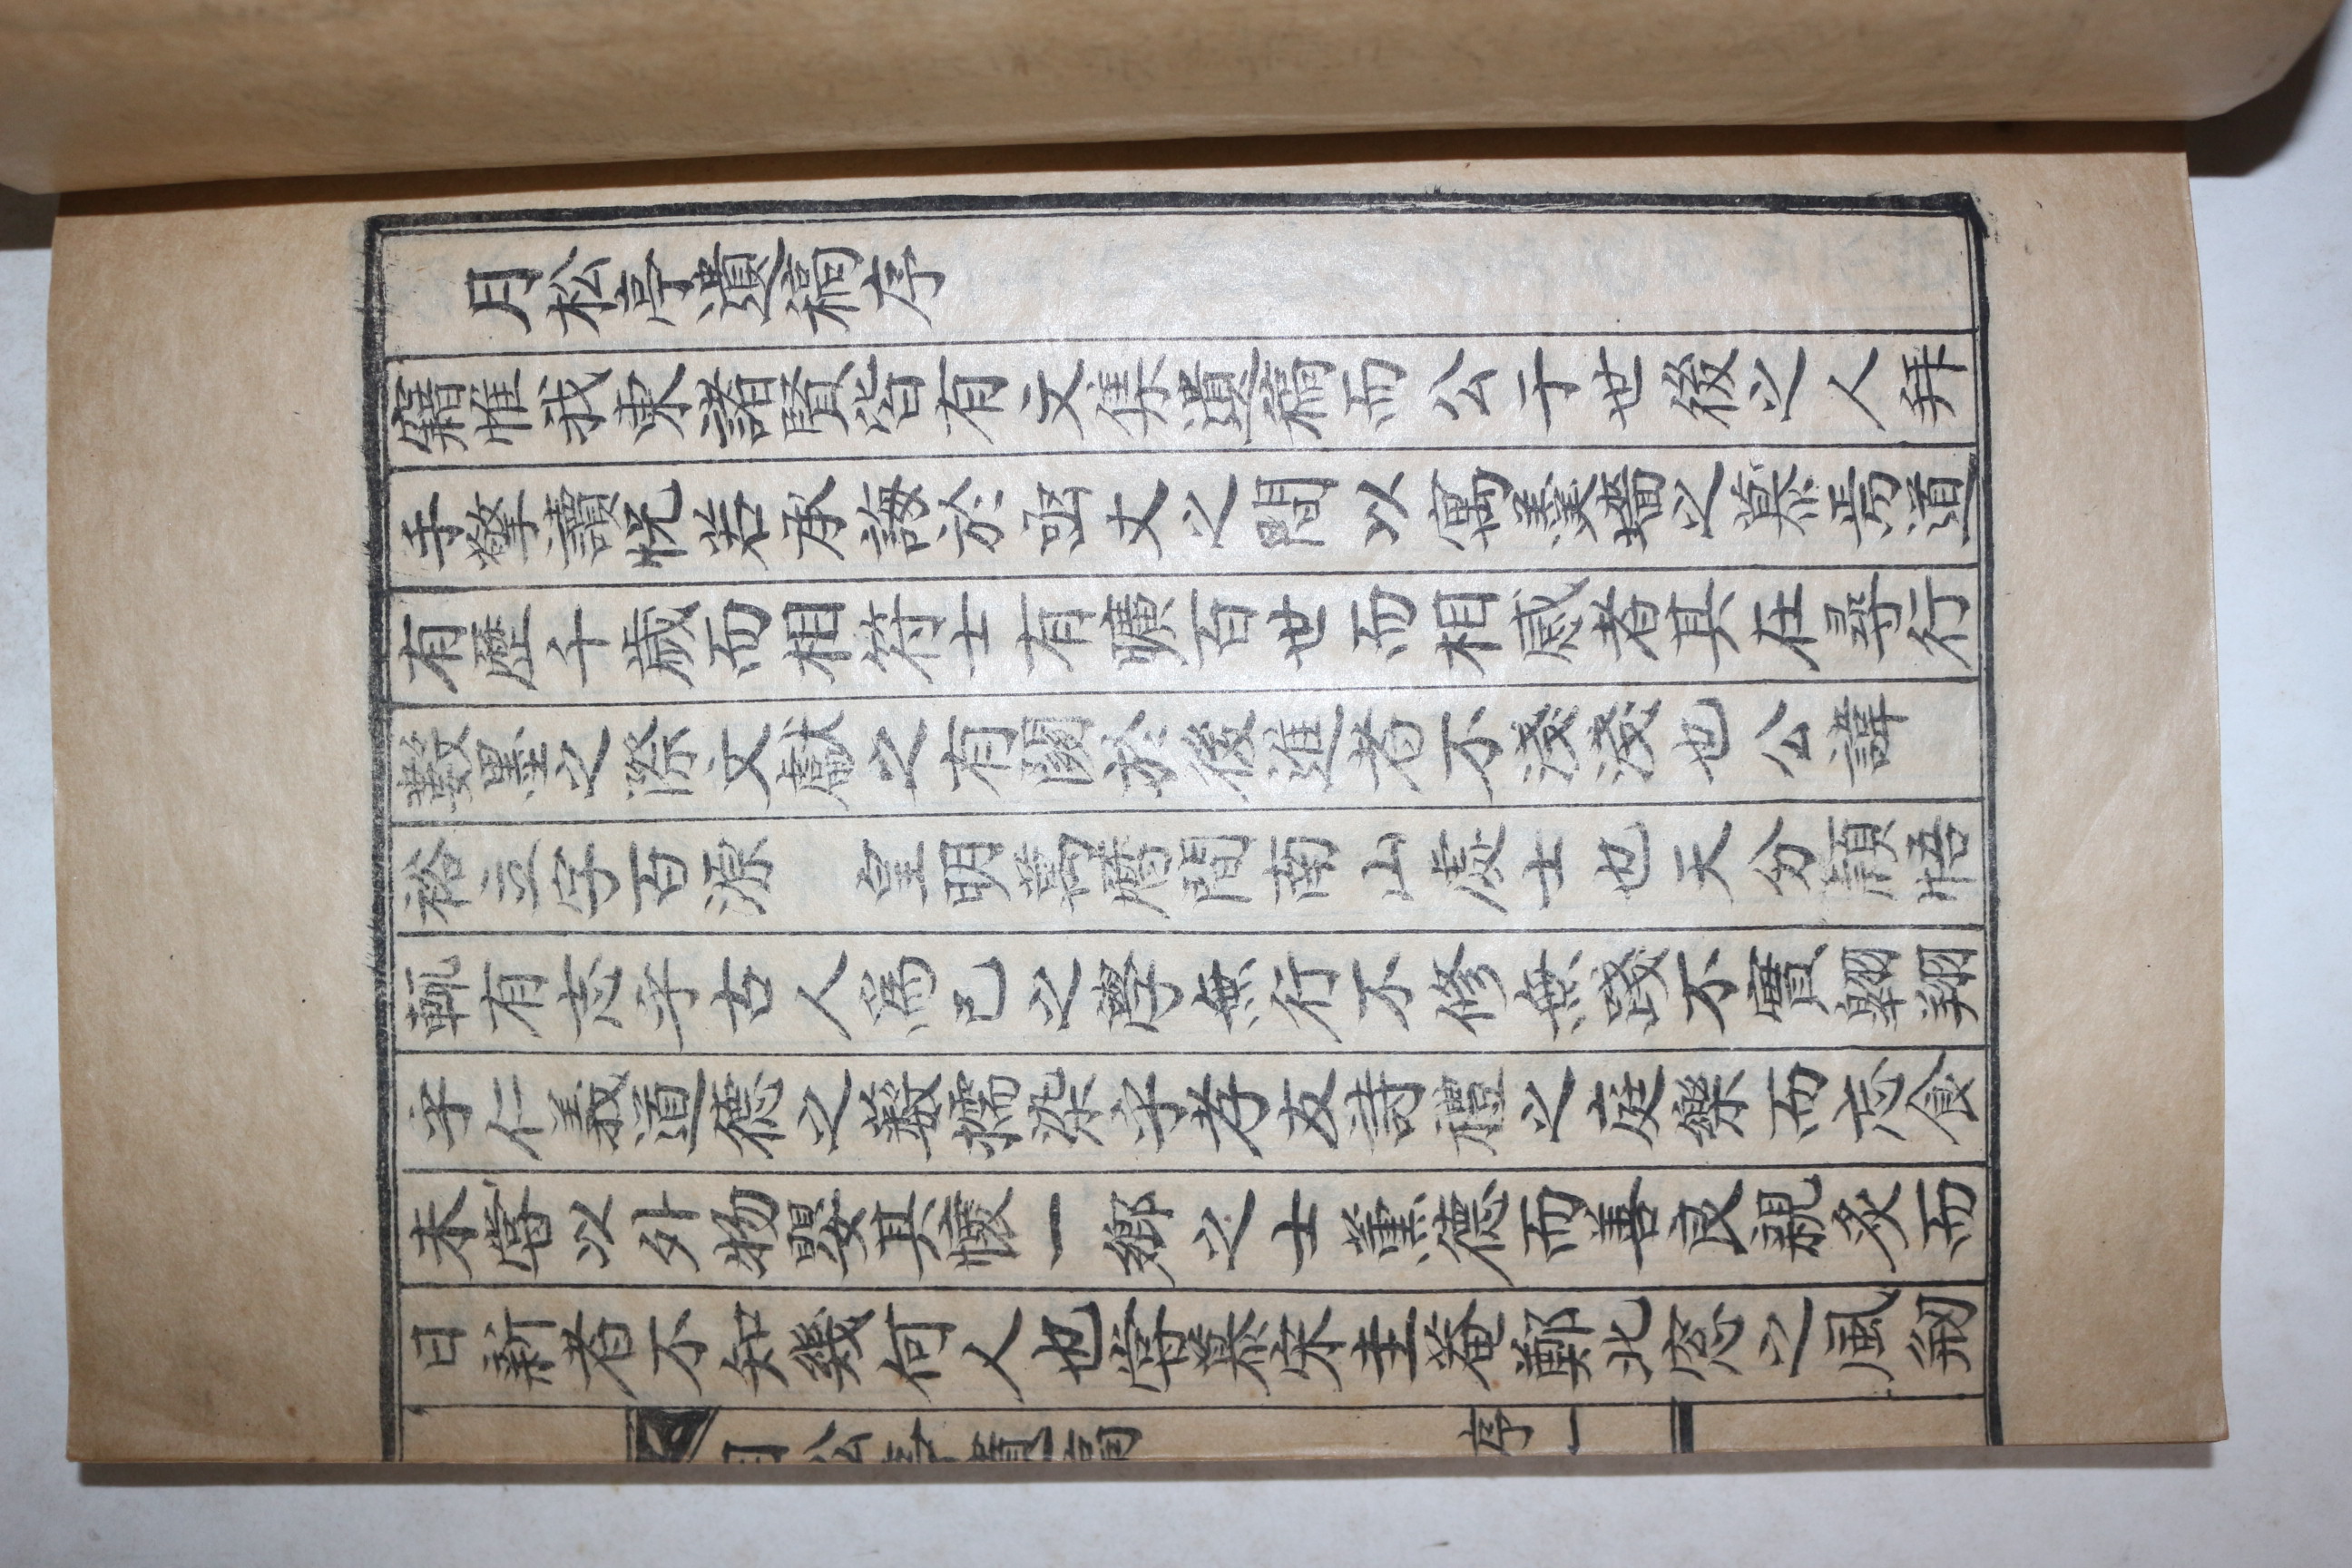 月松亭遺稿序
籍惟我東諸賢皆有文集遺稿而公于世後之人拜
手擎讀怳若承誨於函丈之間以寓羹墻之慕焉道
有歷千歲而相符士有曠百世而相感者其在尋行
數墨之際文獻之有關於後進者不淺淺也公諱
裕立字百源 皇明萬曆間南山處士也天分穎悟
輒有志乎古人爲己之學無行不修無踐不實翱翔
乎仁義道德之藪擩染乎孝友詩禮之庭樂而忘食
未嘗以外物嬰其懷一鄕之士薰德而善良親炙而
日新者不知幾何人也嘗慕宋圭菴鄭北窓之風剏
月松亭遺稿 序 一